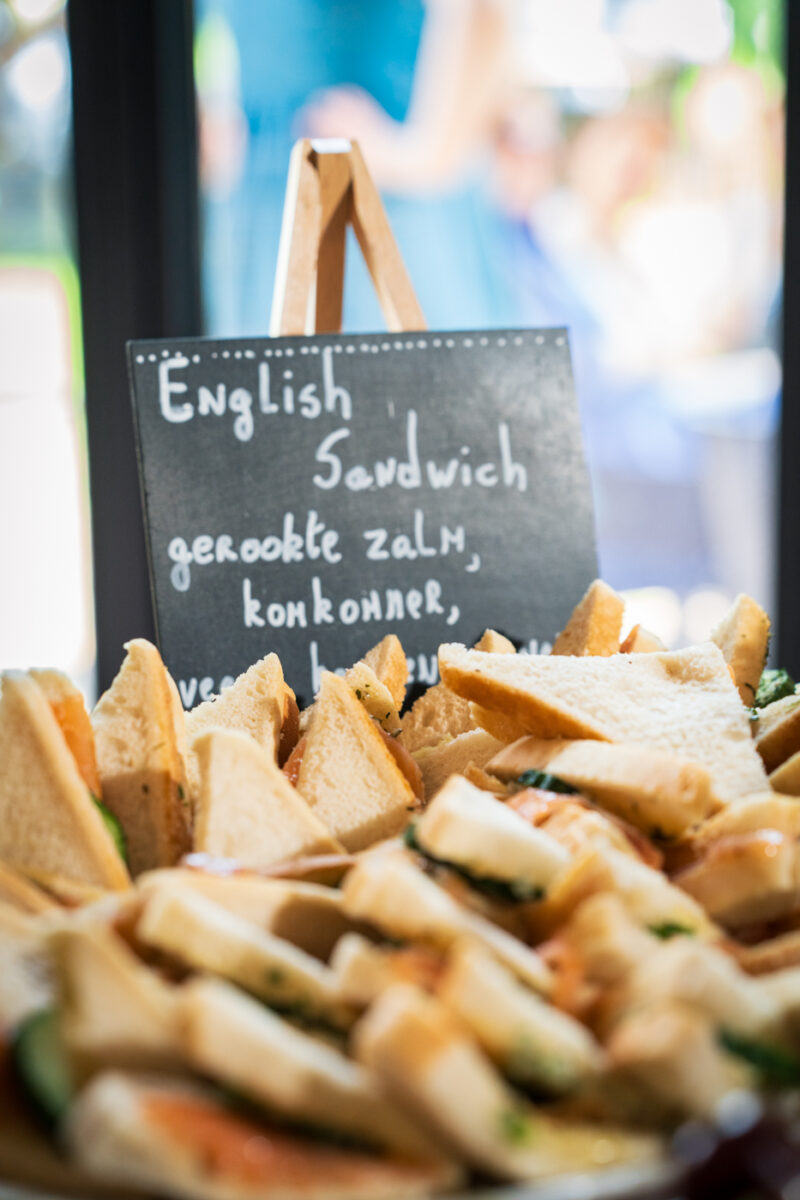 English
Sandwich
gerookte zalm,
komkommer,